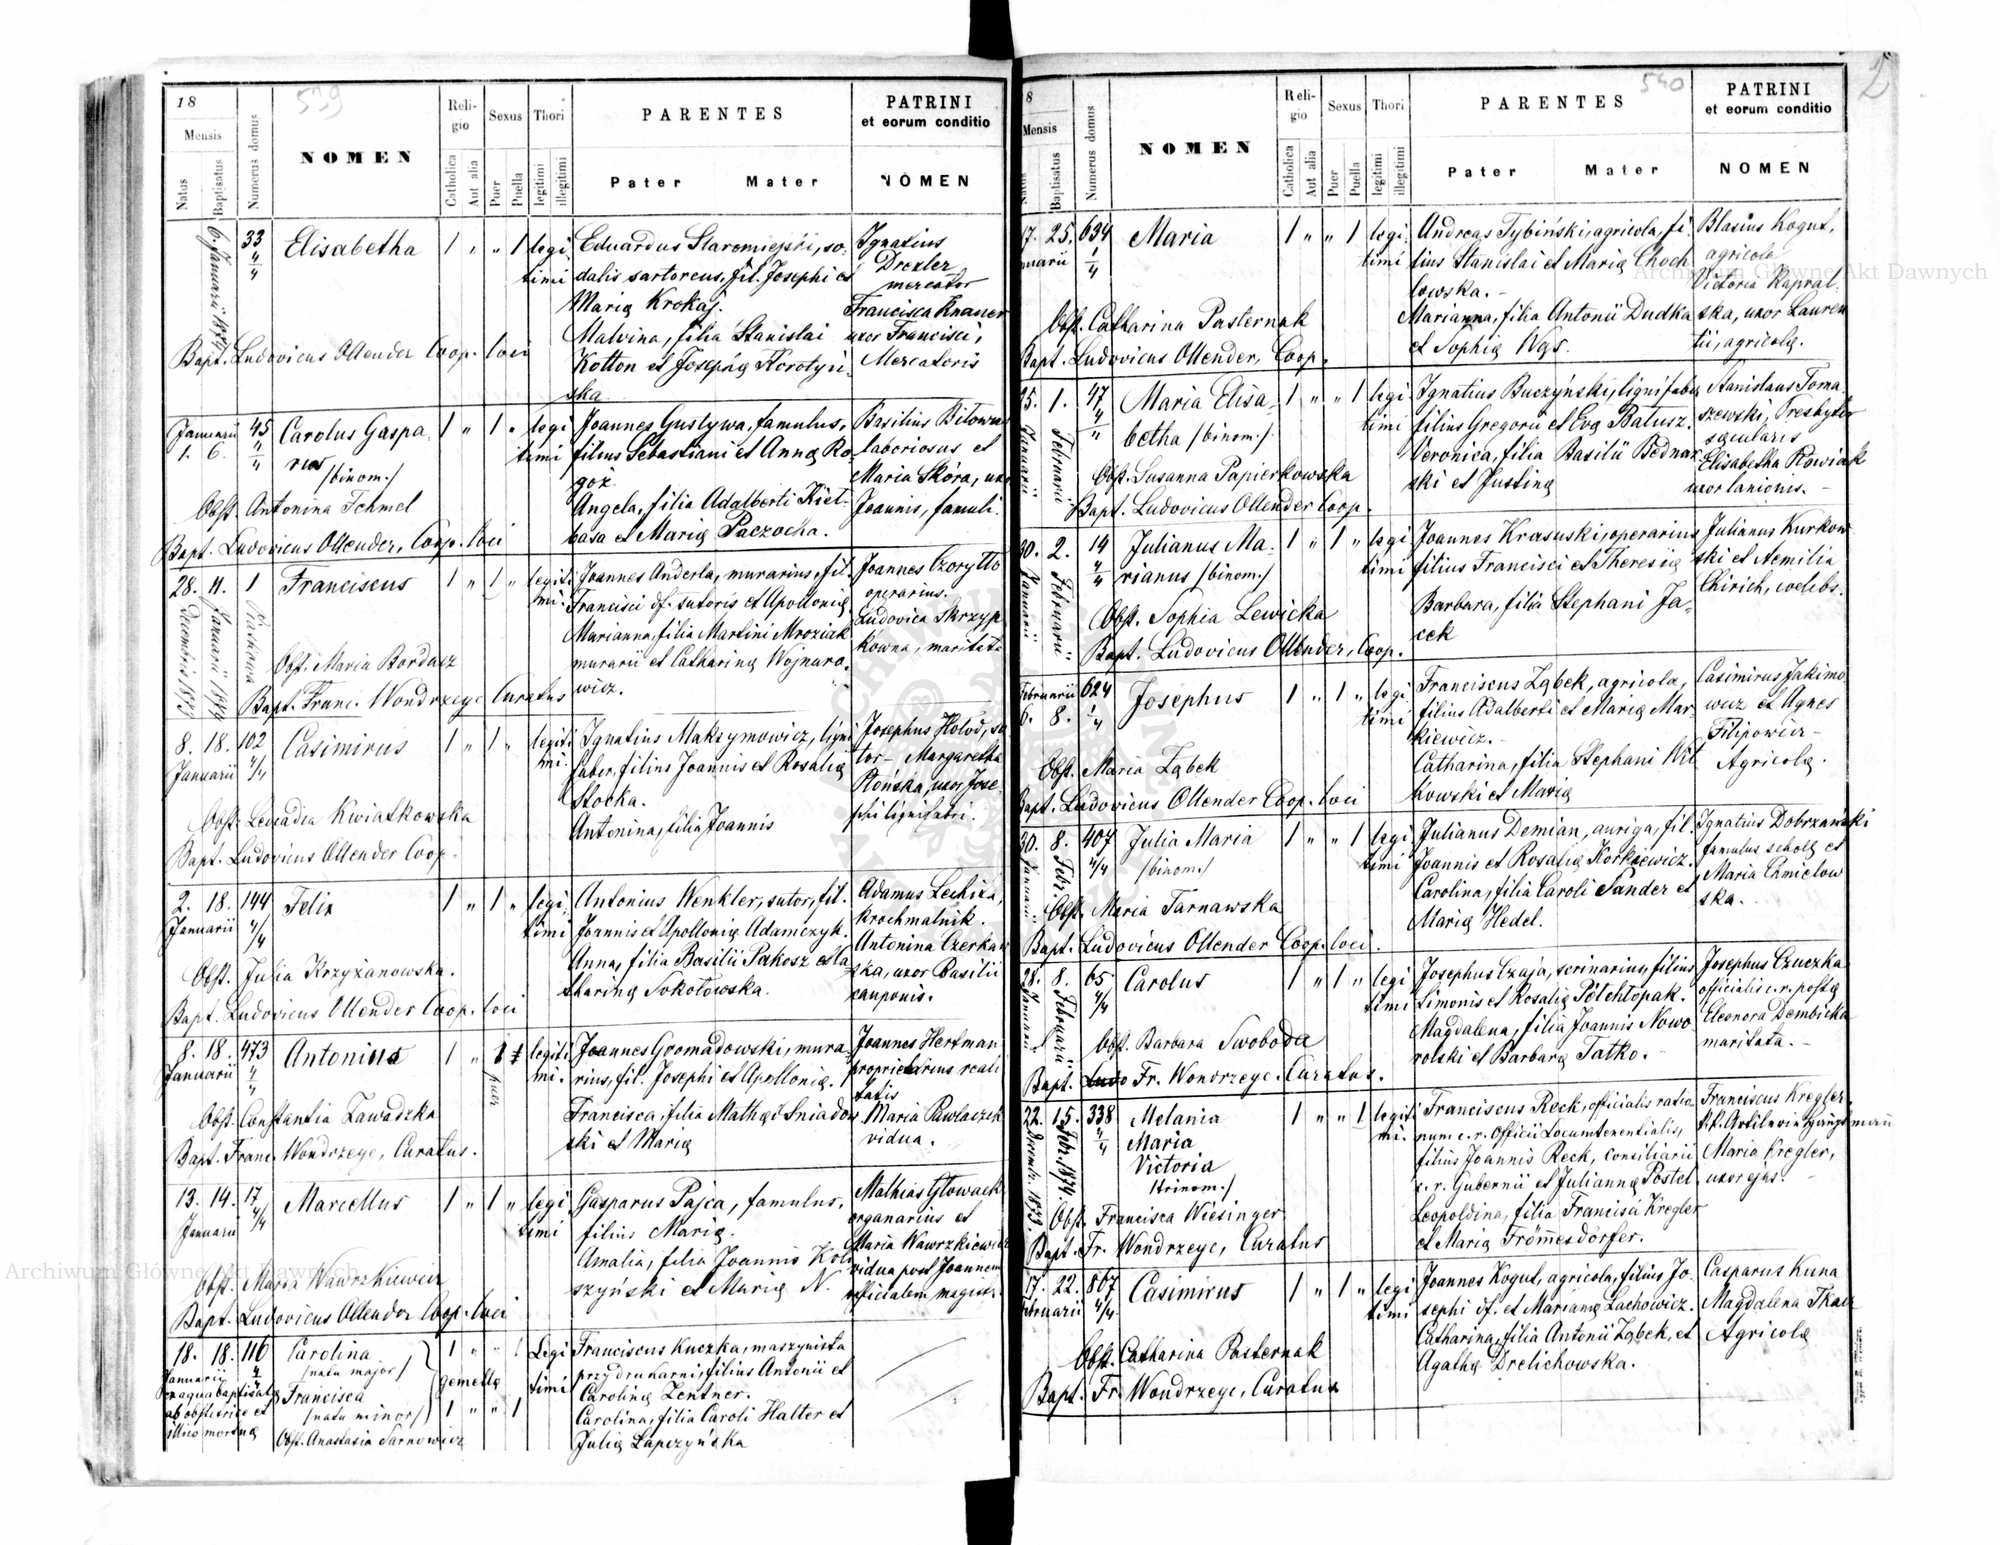 539
18
Mensis
Natus
Baptisatus
Numerus domus
NOMEN
Religio
Catholica
Aut alia
Sexus
Puer
Puella
Thori
legitimi
illegitimi
PARENTES
Pater Mater
PATRINI
et eorum conditio
NOMEN
6. Januarii 1874
33
4/4
Elisabetha
1 " " 1
legi
timi
Eduardus Staromiejski, so-
dalis sartoreus, fil. Josephi et
Mariæ Krokaj.
Malvina, filia Stanislai
Kotton et Josephæ Horotyń-
ska
Ignatius
Drexler
mercator
Francisca Knauer
uxor Francisci,
Mercatoris
Bapt. Ludovicus Ollender Coop. loci
Januarii
1. 6.
45
4/4
Carolus Gaspa-
rus
/binom./
1 " 1 "
legi
timi
Joannes Gustywa, famulus,
filius Sebastiani et Annæ Ro-
goż
Angela, filia Adalberti Kieł-
basa et Mariæ Paczocha.
Basilius
laboriosus et
Maria Skóra, uxor
Joannis, famuli.
Obst. Antonina Tehmel
Bapt. Ludovicus Ollender, Coop. loci
28. 11. 1
Decembris 1873
Januarii 1874
Franciscus
1 " 1 "
legiti
mi.
Joannes Anderla, murarius, fil.
Francisci df. sutoris et Apolloniæ
Marianna, filia Martini Mroziak
murarii et Catharinæ Wojnaro-
wicz.
Joannes Czoryłło
operarius.
Ludovica Skrzyp
kowna, maritata
Obst. Maria Bordasz
Bapt. Franc. Wondrzeyc Curatus
8. 18. 102
Januarii 4/4
Casimirus
1 " 1 "
legiti
mi.
Ignatius Maksymowicz, ligni
faber, filius Joannis et Rosaliæ
Stocka.
Antonina, filia Joannis
Josephus Hołod, su-
tor - Margaretha
Płońska, uxor Jose-
phi lignifabri.
Obst. Leocadia Kwiatkowska
Bapt. Ludovicus Ollender Coop.
2. 18. 144
Januarii 4/4
Felix
1 " 1 "
legi
timi
Antonius Wenkler, sutor, fil.
Joannis et Apolloniæ Adamczyk.
Anna, filia Basilii Pakosz et Ca-
tharinæ Sokołowska.
Adamus Lechita,
krochmalnik.
Antonina Czerkaw
ska, uxor Basilii
cauponis.
Obst. Julia Krzyżanowska.
Bapt. Ludovicus Ollender Coop. loci
8. 18. 473
Januarii 4/4
Antonius
1 " 1
puer
legiti
mi.
Joannes Gromadowski, mura-
rius, fil. Josephi et Apolloniæ.
Francisca, filia Mathæi Śniadow
ski et Mariæ
Joannes Hertman
proprietarius reali
tatis
Maria Pawlaczek
vidua.
Obst. Constantia Zawadzka
Bapt. Franc. Wondrzeyc, Curatus.
13. 14. 17
Januarii 4/4
Marcellus
1 " 1 "
legi
timi
Gasparus Pajca, famulus,
filius Mariæ.
Amalia, filia Joannis Koli
szyński et Mariæ N.
Mathias Głowack
organarius et
Maria Wawrzkiewicz
vidua post Joannem
officialem magistr.
Obst. Maria Wawrzkiewicz
Bapt. Ludovicus Ollender Coop. loci
18. 18. 116
Januarii 4/4
ex aqua baptisatæ
ab obstetrice et
illico mortuæ
Carolina
/natu major/
Francisca
/natu minor/
gemellæ
1 " " 1
1 " " 1
Legi
timi
Franciscus Kuczka, maszynista
przy drukarni, filius Antonii et
Carolinæ Zentner.
Carolina, filia Caroli Halter et
Juliæ Łapczyńska
Obst. Anastasia Tarnowicz
540
2
8
Mensis
Natus
Baptisatus
Numerus domus
NOMEN
Religio
Catholica
Aut alia
Sexus
Puer
Puella
Thori
legitimi
illegitimi
PARENTES
Pater Mater
PATRINI
et eorum conditio
NOMEN
17. 25. 634
nuarii 1/4
Maria
1 " " 1
legi
timi
Andreas Tybiński, agricola, fi-
lius Stanislai et Mariæ Choch
łowska.-
Marianna, filia Antonii Dudka
et Sophiæ Węs.
Blasius Kogut,
agricola
Victoria Kapral-
ska, uxor Lauren
tii, agricolæ.
Obst. Catharina Pasternak
Bapt. Ludovicus Ollender, Coop.
25. 1. 47
Januarii
Februarii
Maria Elisa-
betha /binom./
1 " " 1
legi
timi
Ignatius Buczyński, lignifaber
filius Gregorii et Evæ Batusz.
Veronica, filia Basilii Bednar
ski et Justinæ
Stanislaus Toma
szewski, Presbyter
sæcularis
Elisabetha Rowiak
uxor lanionis.-
Obst. Susanna Papierkowska
Bapt. Ludovicus Ollender Coop.
30. 2. 14
Januarii
Februarii
4/4
Julianus Ma-
rianus /binom./
1 " 1 "
legi
timi
Joannes Krasuski, operarius
filius Francisci et Theresiæ
Barbara, filia Stephani Ja-
cek
Julianus Kurkow
ski et Aemilia
Chirich, coelebs.
Obst. Sophia Lewicka
Bapt. Ludovicus Ollender, Coop.
Februarii
6. 8.
624
1/4
Josephus
1 " 1 "
legi
timi
Franciscus Ząbek, agricola,
filius Adalberti et Mariæ Mar-
kiewicz.-
Catharina, filia Stephani Wit
kowski et Mariæ
Casimirus Jakimo
wicz et Agnes
Filipowicz-
Agricolæ.
Obst. Maria Ząbek
Bapt. Ludovicus Ollender Coop. loci
30. 8. 407
Januarii
Febr.
4/4
Julia Maria
/binom./
1 " " 1
legi
timi
Julianus Demian, auriga, fil.
Joannis et Rosaliæ Korkiewicz.
Carolina, filia Caroli Sander et
Mariæ Hedel.
Ignatius Dobrzański
famulus scholæ et
Maria Chmielow
ska.
Obst. Maria Tarnawska
Bapt. Ludovicus Ollender Coop. loci.
28. 8. 65
Januarii
Februarii
4/4
Carolus
1 " 1 "
legi
timi
Josephus Czaja, scrinarius, filius
Simonis et Rosaliæ Półchłopak.
Magdalena, filia Joannis Nowo
rolski et Barbaræ Tatko.-
Josephus Czuczka
officialis c.r. postæ
Eleonora Dembicka
maritata.-
Obst. Barbara Swoboda
Bapt. Ludo Fr. Wondrzeyc. Curatus.
22. 15. 338
Decembr. 1873
Febr. 1874.
4/4
Melania
Maria
Victoria
/trinom./
1 " " 1
legiti
mi.
Franciscus Reck, officialis ratio
num c.r. Officii Locumtenentialis,
filius Joannis Reck, consiliarii
c.r. Gubernii et Juliannæ Postel
Leopoldina, filia Francisci Kregler
et Mariæ Frömmesdorfer.
Franciscus Kregler,
k.k. Artilerie Hauptmann
Maria Kregler,
uxor ejus.-
Obst. Francisca Wiesinger
Bapt. Fr. Wondrzeyc, Curatus
17. 22. 867
Februarii 4/4
Casimirus
1 " 1 "
legi
timi
Joannes Kogut, agricola, filius Jo-
sephi df. et Mariannæ Lachowicz.
Catharina, filia Antonii Ząbek, et
Agathæ Drelichowska.
Casparus Kuna
Magdalena Tkacz
Agricolæ
Obst. Catharina Pasternak
Bapt. Fr. Wondrzeyc, Curatus
Archiwum Główne Akt Dawnych
Archiwum Główne Akt Dawnych